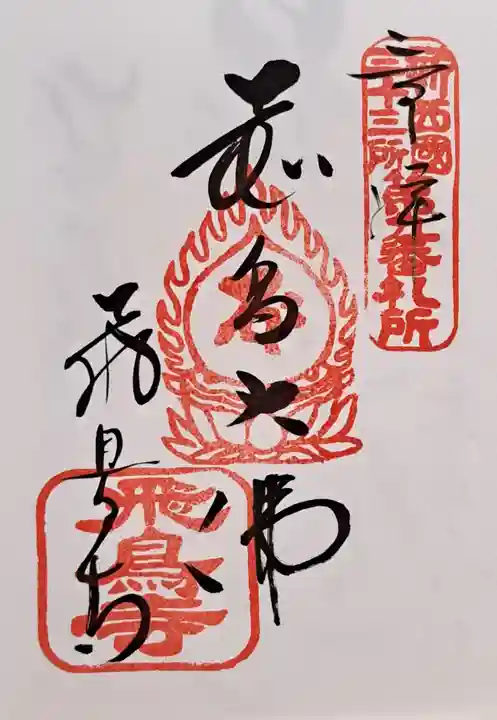 奉拝
新西國
三十三所
第九番札所
飛鳥大仏
飛鳥寺
飛鳥寺